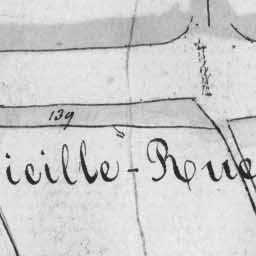 139
ieille-Rue